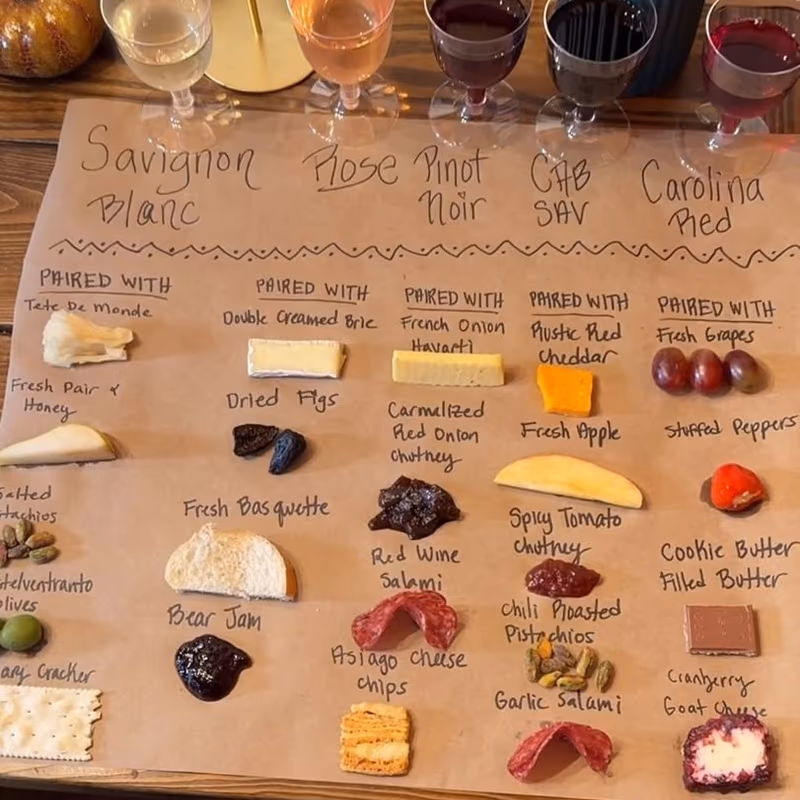 Savignon
Blanc
PAIRED WITH
Tete De Monde
Fresh Pair &
Honey
Salted
tachios
telventranto
lives
ary Cracker
Rose
PAIRED WITH
Double Creamed Brie
Dried Figs
Fresh Basquette
Bear Jam
Pinot
Noir
PAIRED WITH
French Onion
Havarti
Carmalized
Red Onion
Chutney
Red Wine
Salami
Asiago Cheese
Chips
CAB
SAV
PAIRED WITH
Rustic Red
Cheddar
Fresh Apple
Spicy Tomato
Chutney
Chili Roasted
Pistachios
Garlic Salami
Carolina
Red
PAIRED WITH
Fresh Grapes
Stuffed Peppers
Cookie Butter
Filled Butter
Cranberry
Goat Cheese